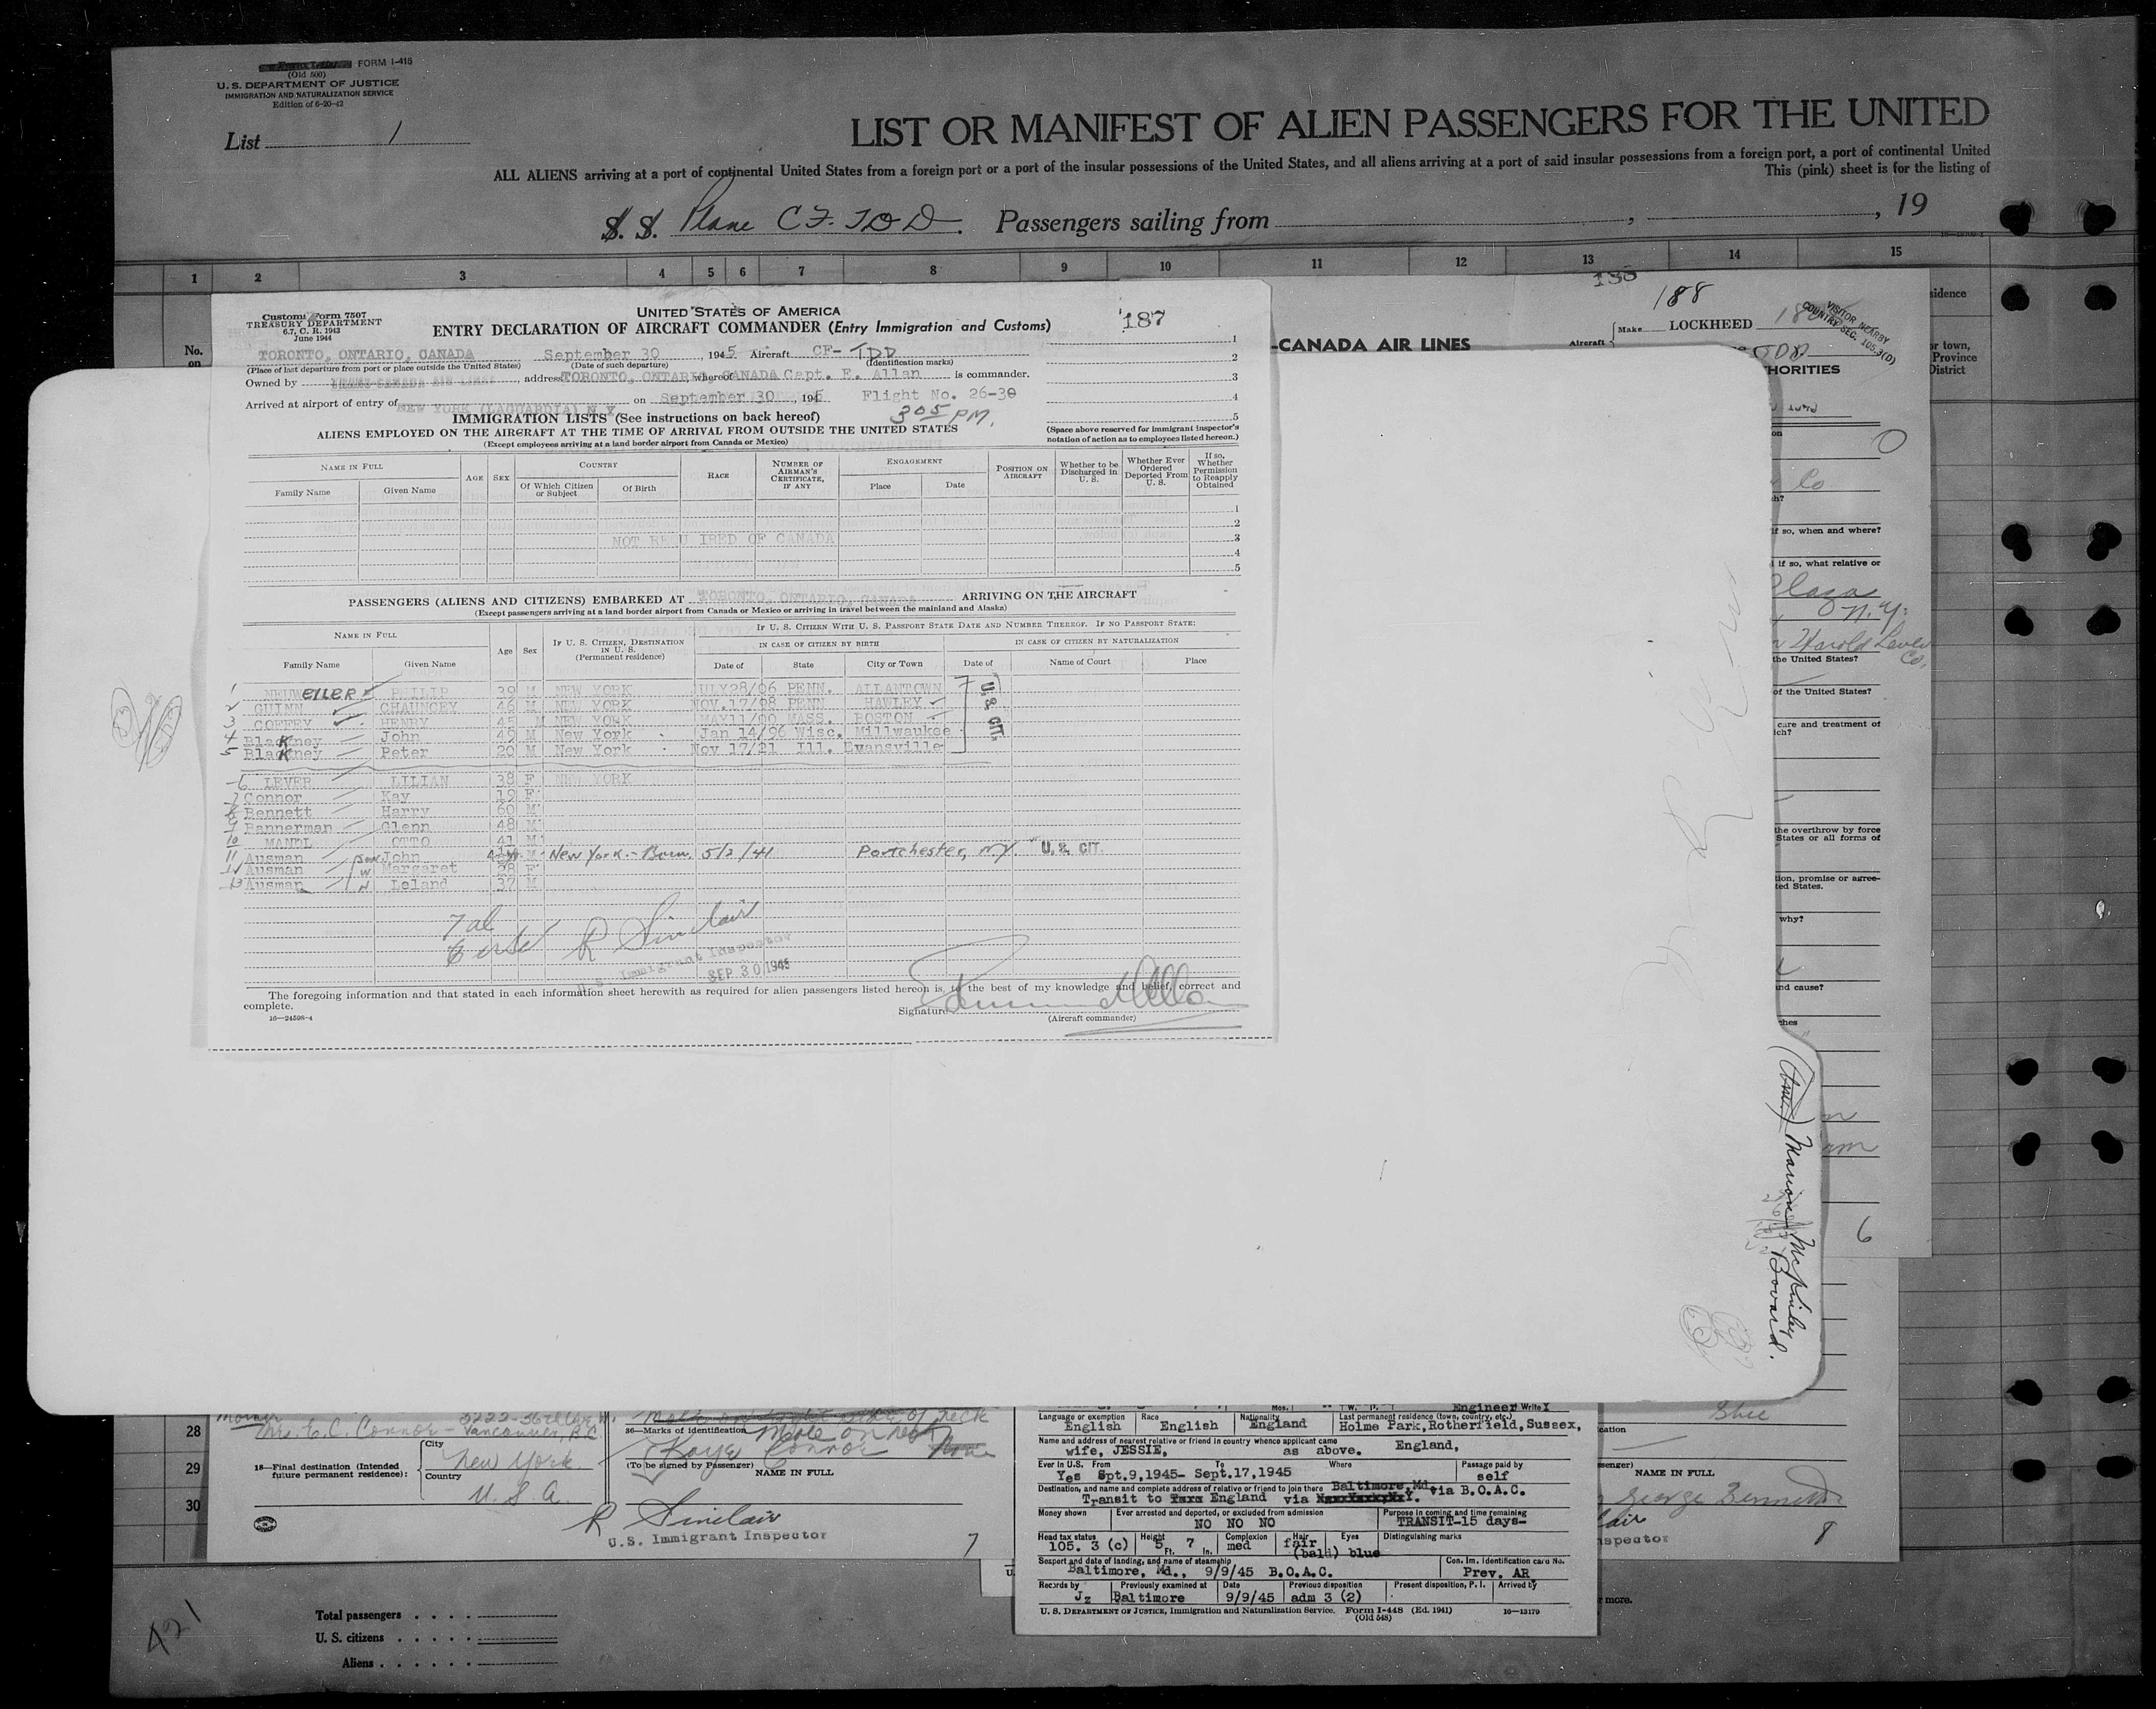 FORM I-415
(Old 500)
U. S. DEPARTMENT OF JUSTICE
IMMIGRATION AND NATURALIZATION SERVICE
Edition of 6-20-42
List 1
LIST OR MANIFEST OF ALIEN PASSENGERS FOR THE UNITED
ALL ALIENS arriving at a port of continental United States from a foreign port or a port of the insular possessions of the United States, and all aliens arriving at a port of said insular possessions from a foreign port, a port of continental United
This (pink) sheet is for the listing of
S. S. Plane CF-TDD. Passengers sailing from , , 19
1 2 3 4 5 6 7 8 9 10 11 12 13 14 15
No.
on
sidence
or town,
Province
District
Customs Form 7507
TREASURY DEPARTMENT
6.7, C. R. 1943
June 1944
UNITED STATES OF AMERICA
ENTRY DECLARATION OF AIRCRAFT COMMANDER (Entry Immigration and Customs)
187
TORONTO, ONTARIO, CANADA September 30, 1945 Aircraft CF-TDD
(Place of last departure from port or place outside the United States) (Date of such departure) (Identification marks)
Owned by TRANS-CANADA AIR LINES, address TORONTO, ONTARIO, CANADA whereof Capt. E. Allan is commander.
Arrived at airport of entry of NEW YORK (LAGUARDIA) N Y on September 30, 1945 Flight No. 26-30
305 PM.
1
2
3
4
5
(Space above reserved for immigrant inspector's
notation of action as to employees listed hereon.)
IMMIGRATION LISTS (See instructions on back hereof)
ALIENS EMPLOYED ON THE AIRCRAFT AT THE TIME OF ARRIVAL FROM OUTSIDE THE UNITED STATES
(Except employees arriving at a land border airport from Canada or Mexico)
NAME IN FULL
Family Name Given Name
AGE SEX
COUNTRY
Of Which Citizen or Subject Of Birth
RACE
NUMBER OF AIRMAN'S CERTIFICATE, IF ANY
ENGAGEMENT
Place Date
POSITION ON AIRCRAFT
Whether to be Discharged in U. S.
Whether Ever Ordered Deported From U. S.
If so, Whether Permission to Reapply Obtained
1
2
NOT REQUIRED OF CANADA 3
4
5
PASSENGERS (ALIENS AND CITIZENS) EMBARKED AT TORONTO, ONTARIO, CANADA ARRIVING ON THE AIRCRAFT
(Except passengers arriving at a land border airport from Canada or Mexico or arriving in travel between the mainland and Alaska)
NAME IN FULL
Family Name Given Name
Age Sex
IF U. S. CITIZEN, DESTINATION IN U. S. (Permanent residence)
IF U. S. CITIZEN WITH U. S. PASSPORT STATE DATE AND NUMBER THEREOF. IF NO PASSPORT STATE:
IN CASE OF CITIZEN BY BIRTH
Date of State City or Town
IN CASE OF CITIZEN BY NATURALIZATION
Date of Name of Court Place
1 NEUWEILER PHILIP 39 M NEW YORK JULY28/06 PENN. ALLANTOWN
2 GUINN CHAUNCEY 46 M NEW YORK NOV.17/98 PENN HAWLEY
3 COFFEY HENRY 45 M NEW YORK MAY11/00 MASS. BOSTON
4 Blackney John 49 M New York Jan 14/96 Wisc. Millwaukee
5 Blackney Peter 20 M New York Nov 17/21 Ill. Evansville
U. S. CIT.
6 LEVER LILIAN 38 F NEW YORK
7 Connor Kay 19 F
8 Bennett Harry 60 M
9 Bannerman Glenn 48 M
10 MANDL OTTO 41 M
11 Ausman son John 4 M New York - Born 5/2/41 Portchester, N.Y. U. S. CIT.
12 Ausman W Margaret 28 F
13 Ausman H Leland 37 M
7 al
6 usc R Sinclair
U. S. Immigrant Inspector
SEP 30 1945
The foregoing information and that stated in each information sheet herewith as required for alien passengers listed hereon is, to the best of my knowledge and belief, correct and
complete.
16—24598-4
Signature
(Aircraft commander)
-CANADA AIR LINES
188
Aircraft Make LOCKHEED
VISITOR NEARBY
COUNTRY SEC. 105.3(D)
TDD
HORITIES
Co
if so, when and where?
if so, what relative or
Plaza
N.Y.
Harold Lever
Co.
the United States?
of the United States?
care and treatment of
ich?
the overthrow by force
States or all forms of
tion, promise or agree-
ted States.
why?
and cause?
6
Marion McKinley
Bovard.
28
29
30
Mother
Mrs. E. C. Connor - Vancouver, B.C.
City
New York
18—Final destination (Intended
future permanent residence):
Country
U. S. A.
36—Marks of identification Mole on neck
Kaye Connor
(To be signed by Passenger)
NAME IN FULL
R Sinclair
U.S. Immigrant Inspector
7
Engineer Write I
Language or exemption Race Nationality Last permanent residence (town, country, etc.)
English English England Holme Park, Rotherfield, Sussex,
Name and address of nearest relative or friend in country whence applicant came
wife, JESSIE, as above. England,
Ever in U.S. From To Where Passage paid by
Yes Spt.9,1945- Sept.17,1945 self
Destination, and name and complete address of relative or friend to join there Baltimore, Md. via B.O.A.C.
Transit to England via
Money shown Ever arrested and deported, or excluded from admission Purpose in coming and time remaining
NO NO NO TRANSIT-15 days-
Head tax status Height Complexion Hair Eyes Distinguishing marks
105. 3 (c) 5 Ft. 7 In. med fair (bald) blue
Seaport and date of landing, and name of steamship Con. Im. Identification card No.
Baltimore, Md., 9/9/45 B.O.A.C. Prev. AR
Records by Previously examined at Date Previous disposition Present disposition, P. I. Arrived by
Jz Baltimore 9/9/45 adm 3 (2)
U. S. DEPARTMENT OF JUSTICE, Immigration and Naturalization Service. Form I-448 (Ed. 1941) 16—13179
(Old 548)
NAME IN FULL
George Bennett
8
more.
421
Total passengers
U. S. citizens
Aliens